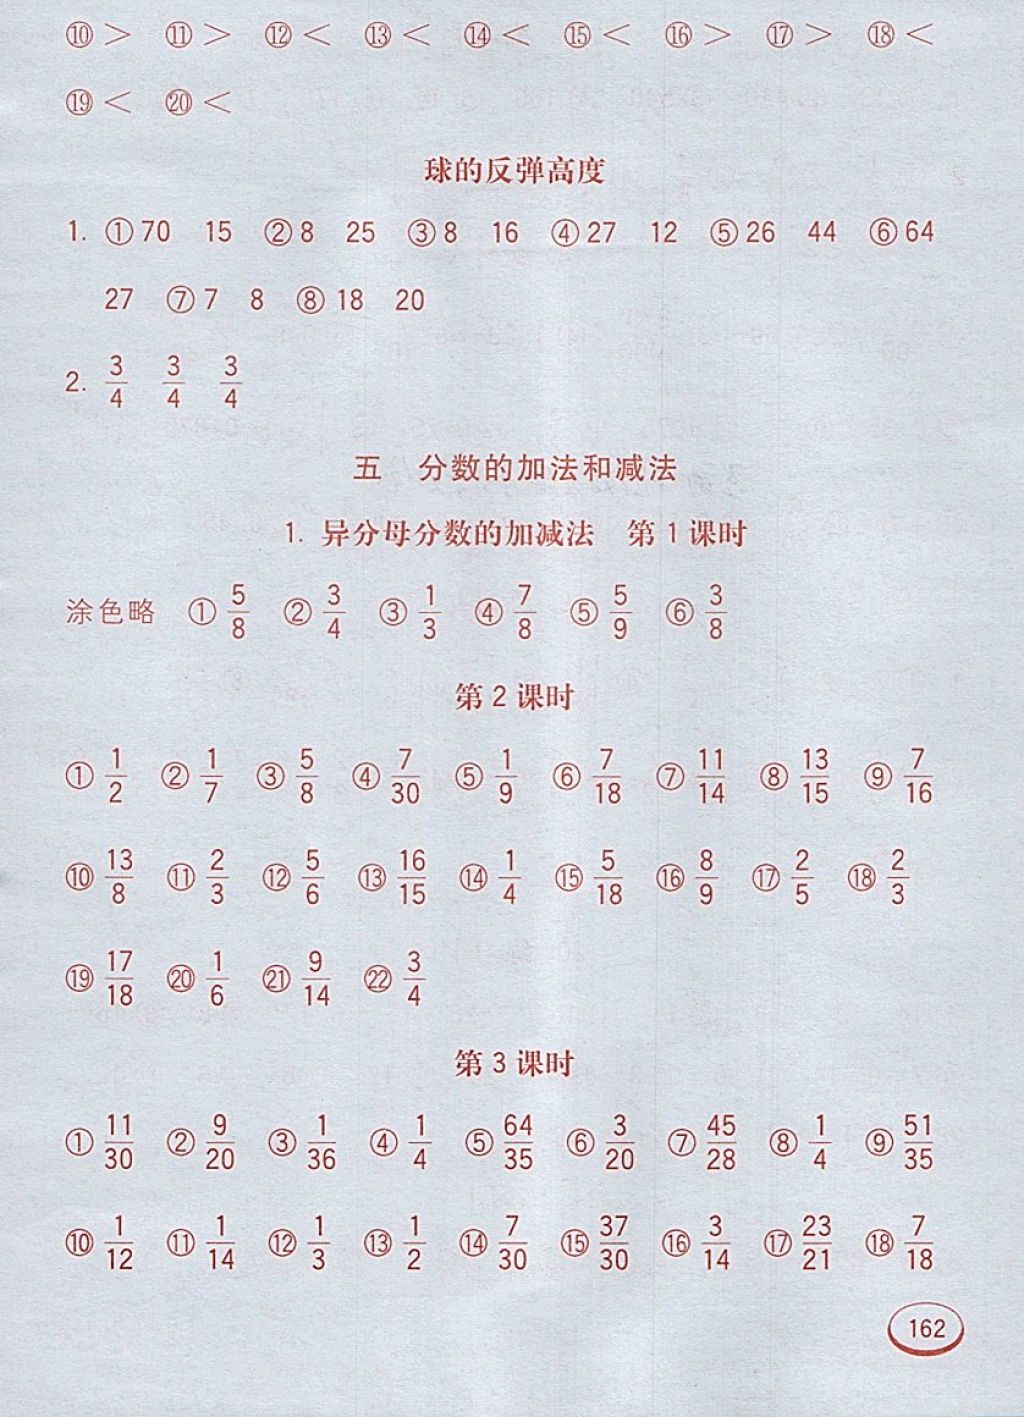 ⑩ > ⑪ > ⑫ < ⑬ < ⑭ < ⑮ < ⑯ > ⑰ > ⑱ <
⑲ < ⑳ <
球的反弹高度
1. ①70 15 ②8 25 ③8 16 ④27 12 ⑤26 44 ⑥64
27 ⑦7 8 ⑧18 20
2. 3/4 3/4 3/4
五 分数的加法和减法
1. 异分母分数的加减法 第1课时
涂色略 ①5/8 ②3/4 ③1/3 ④7/8 ⑤5/9 ⑥3/8
第2课时
①1/2 ②1/7 ③5/8 ④7/30 ⑤1/9 ⑥7/18 ⑦11/14 ⑧13/15 ⑨7/16
⑩13/8 ⑪2/3 ⑫5/6 ⑬16/15 ⑭1/4 ⑮5/18 ⑯8/9 ⑰2/5 ⑱2/3
⑲17/18 ⑳1/6 ㉑9/14 ㉒3/4
第3课时
①11/30 ②9/20 ③1/36 ④1/4 ⑤64/35 ⑥3/20 ⑦45/28 ⑧1/4 ⑨51/35
⑩1/12 ⑪1/14 ⑫1/3 ⑬1/2 ⑭7/30 ⑮37/30 ⑯3/14 ⑰23/21 ⑱7/18
162